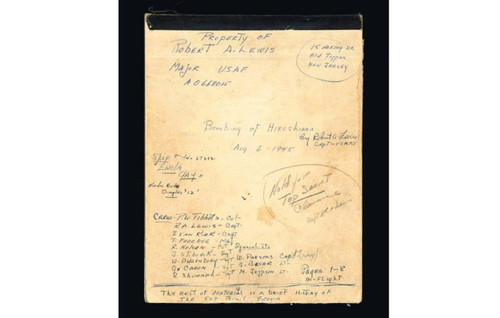 Property of
Robert A. Lewis
Major USAF
AO
Old Tappan
New Jersey
Bombing of Hiroshima
By Robert A. Lewis
Capt - USAAF
Aug 6 - 1945
Ship
Enola
Gay
Code
Hold for
Top Secret
Clearance
Crew - P.W. Tibbets - Col.
R.A. Lewis - Capt.
T. Ferebee - Maj
R. Nelson - Pvt Specialists
J. Stiborik - Sgt W. Parsons Capt (navy)
W. Duzenbury - Sgt J. Beser Lt.
Ge Caron - Sgt M. Jeppson Lt. Pages 1-8
R Shumard - Sgt In-Flight
The Rest of Material is a Brief History of
The